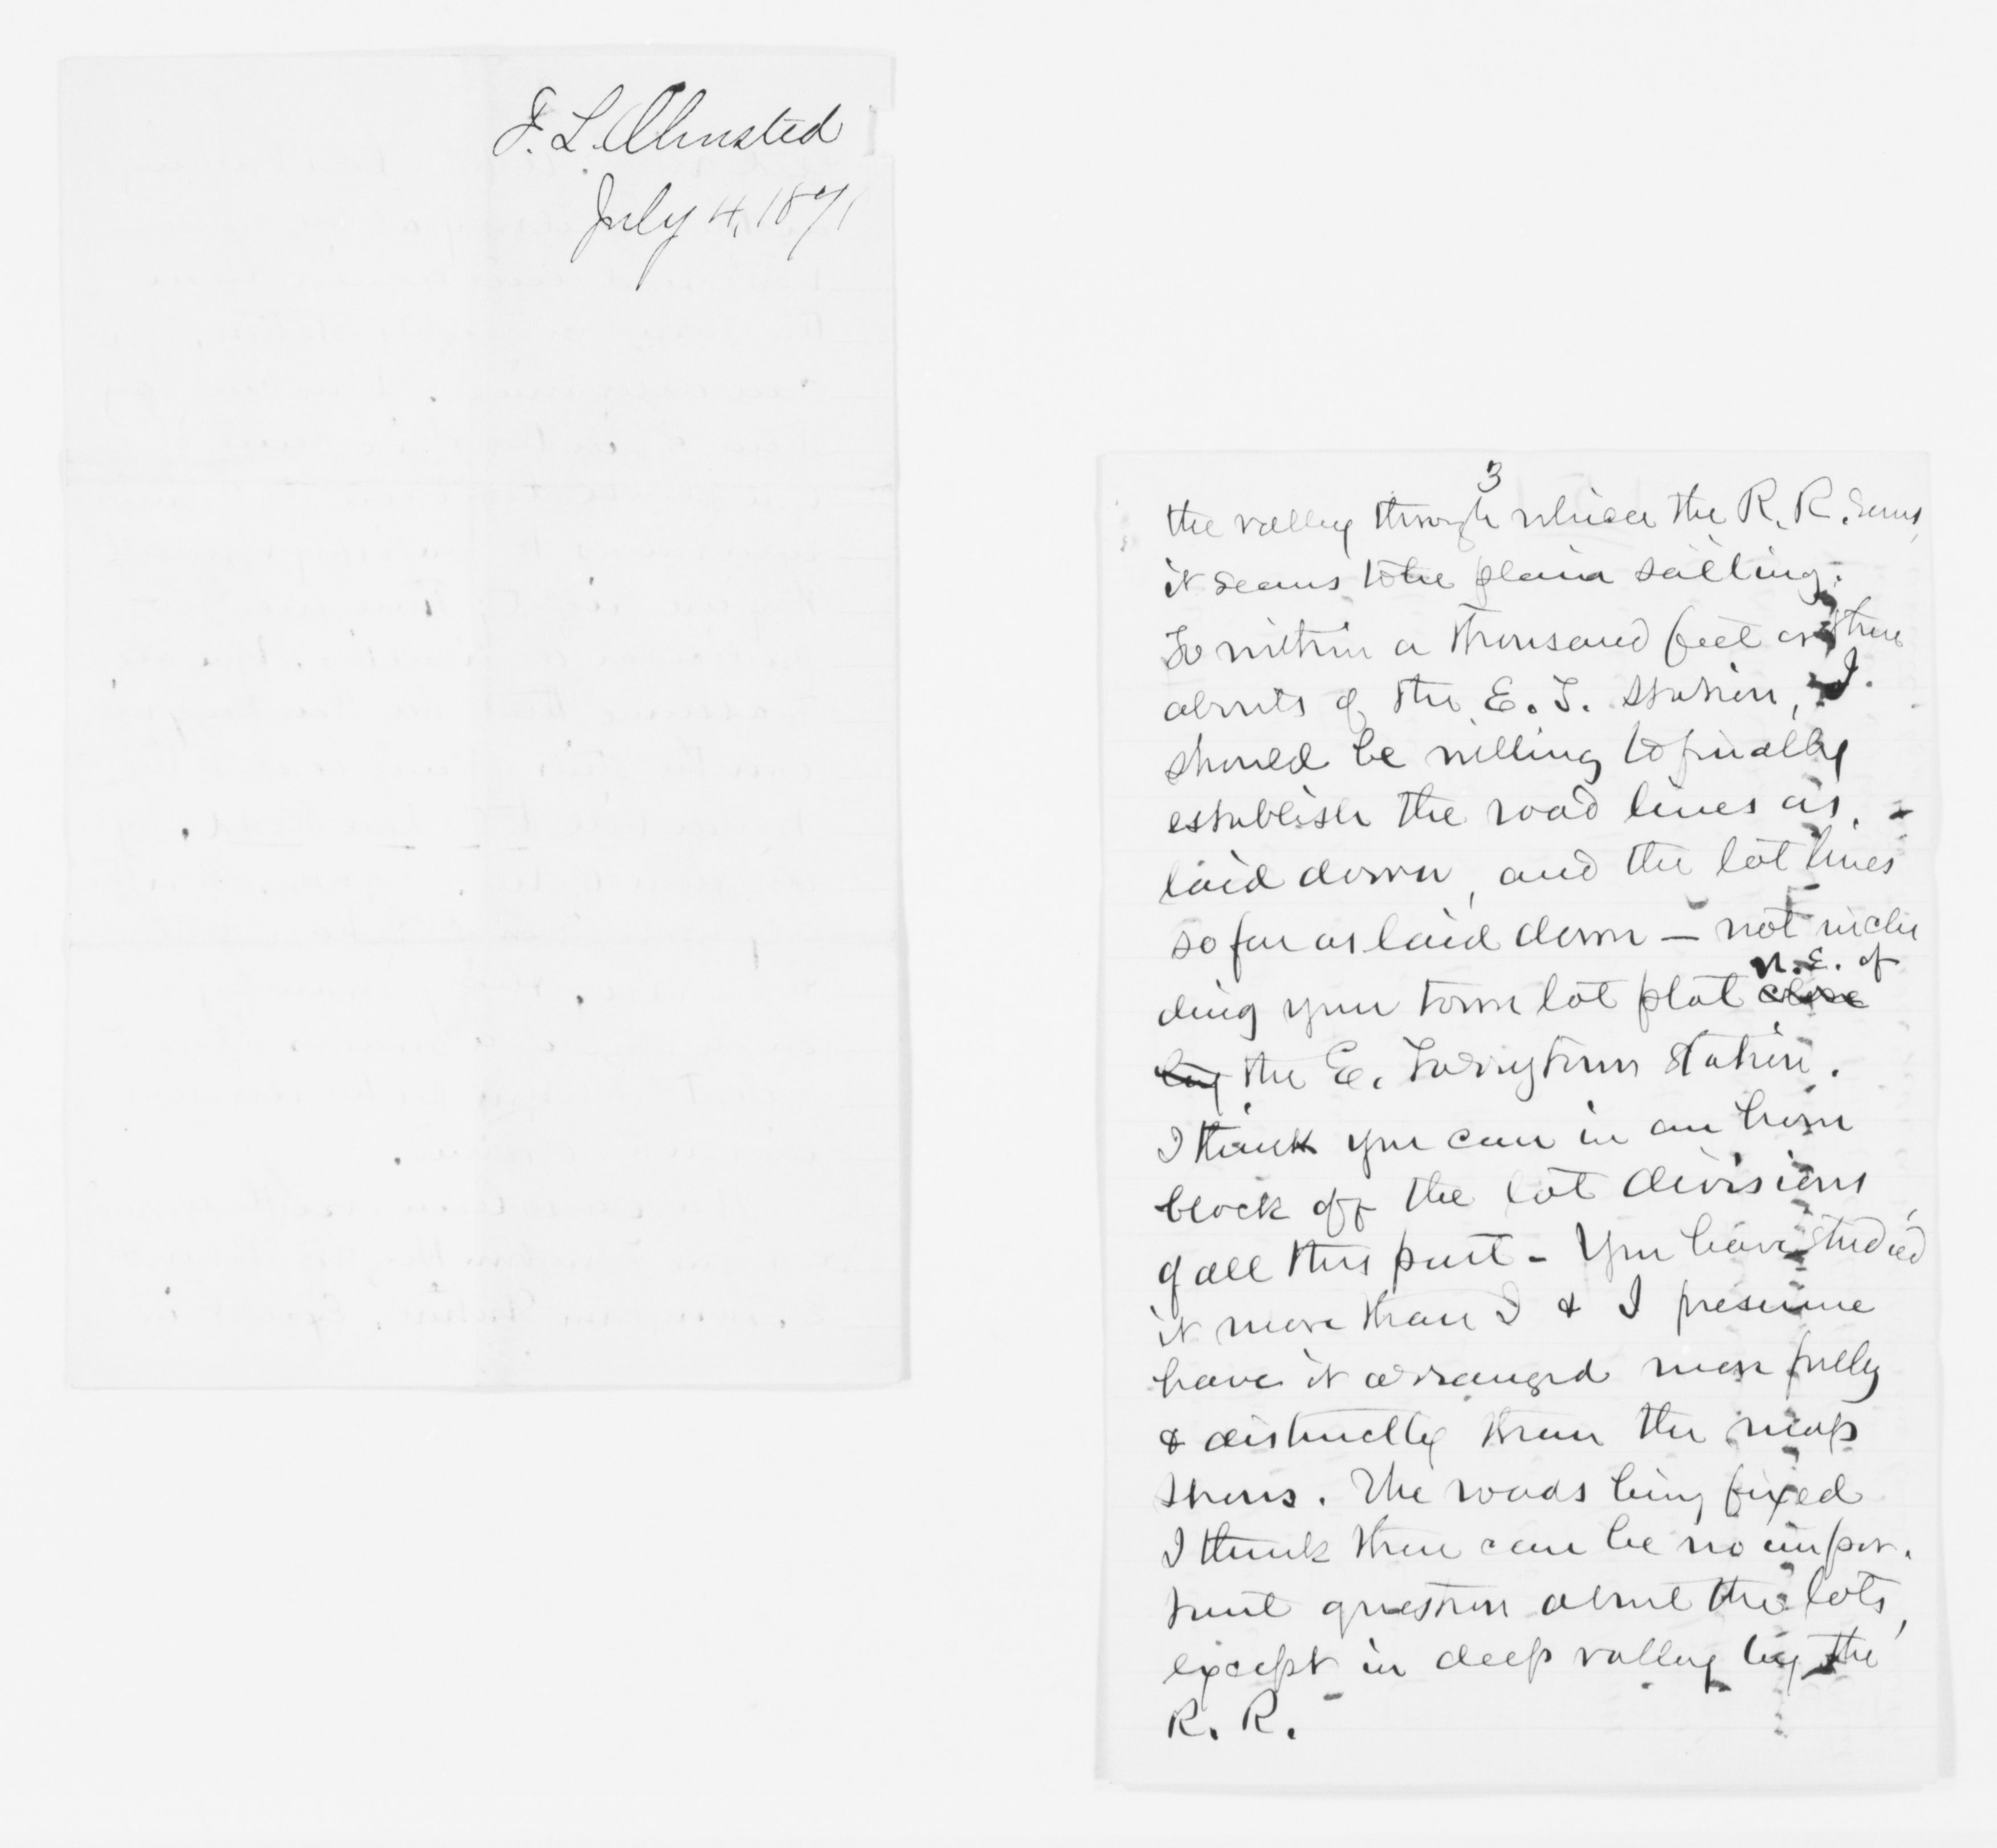 F. L. Olmsted
July 4, 1871
3
the valley through which the R. R. runs,
it seems to be plain sailing.
To within a thousand feet or there
abouts of the E. T. Station, I
should be willing to finally
establish the road lines as
laid down, and the lot lines
so far as laid down — not inclu
ding your town lot plat close N. E. of
by the E. Tarrytown station.
I think you can in an hour
block off the lot divisions
of all this part - You have studied
it more than I & I presume
have it arranged more fully
& distinctly than the map
shows. The roads being fixed
I think there can be no impor.
tant question about the lots,
except in deep valley by the
R. R.